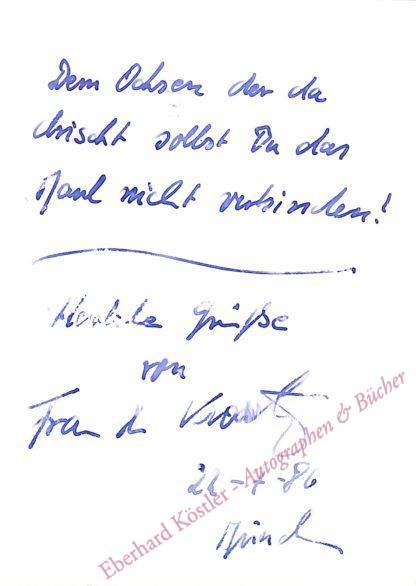 Dem Ochsen der da
drischt sollst Du das
Maul nicht verbinden!
Herzliche Grüße
von
Franz Kroetz
München
Eberhard Köstler - Autographen & Bücher